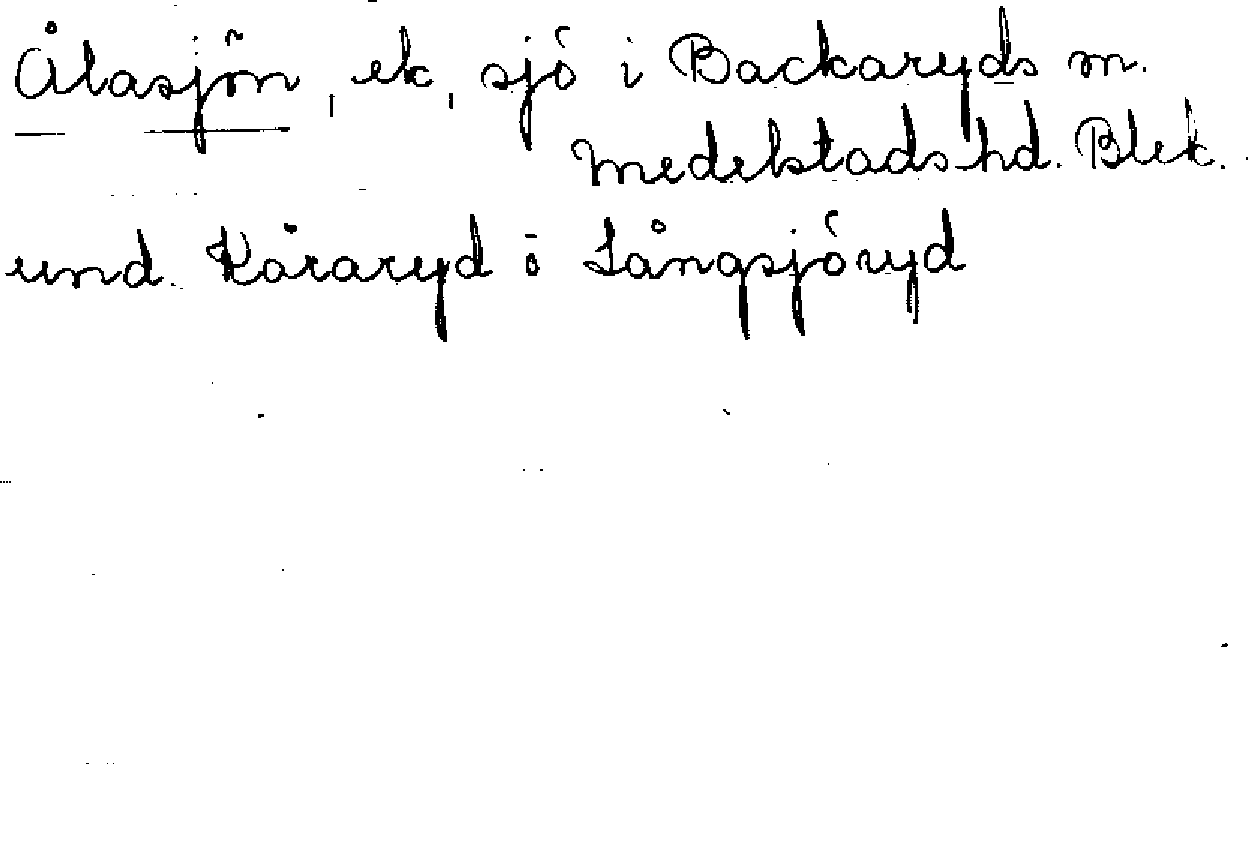 Ålasjön, ek, sjö i Backaryds sn.
Medelstads hd. Blek.
und. Kåraryd o Långsjöryd